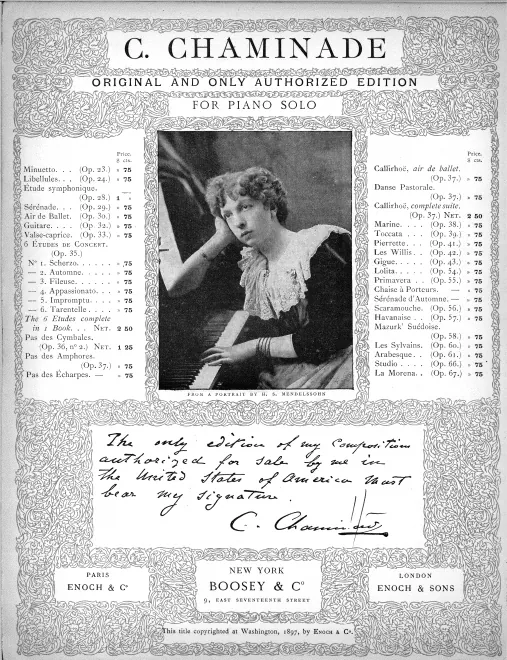 C. CHAMINADE
ORIGINAL AND ONLY AUTHORIZED EDITION
FOR PIANO SOLO
Price.
$ cts.
Minuetto. . . (Op. 23.) » 75
Libellules. . . (Op. 24.) » 75
Étude symphonique. —
(Op. 28.) 1 »
Sérénade. . . (Op. 29.) » 75
Air de Ballet. (Op. 30.) » 75
Guitare. . . (Op. 32.) » 75
Valse-caprice. (Op. 33.) » 75
6 ÉTUDES DE CONCERT.
(Op. 35.)
Nº 1. Scherzo. . . . . . » 75
— 2. Automne. . . . . . » 75
— 3. Fileuse. . . . . . » 75
— 4. Appassionato. . . . » 75
— 5. Impromptu. . . . . » 75
— 6. Tarentelle. . . . . » 75
The 6 Etudes complete
in 1 Book. . . NET. 2 50
Pas des Cymbales.
(Op. 36, nº 2.) NET. 1 25
Pas des Amphores.
(Op. 37.) » 75
Pas des Écharpes. — » 75
FROM A PORTRAIT BY H. S. MENDELSSOHN
Price.
$ cts.
Callirhoë, air de ballet.
(Op. 37.) » 75
Danse Pastorale.
(Op. 37.) » 75
Callirhoë, complete suite.
(Op. 37.) NET. 2 50
Marine. . . . (Op. 38.) » 75
Toccata . . . (Op. 39.) » 75
Pierrette. . . (Op. 41.) » 75
Les Willis. . . (Op. 42.) » 75
Gigue. . . . (Op. 43.) » 75
Lolita. . . . (Op. 54.) » 75
Primavera . . (Op. 55.) » 75
Chaise à Porteurs. — » 75
Sérénade d'Automne. — » 75
Scaramouche. (Op. 56.) » 75
Havanaise . . (Op. 57.) » 75
Mazurk' Suédoise.
(Op. 58.) » 75
Les Sylvains. (Op. 60.) » 75
Arabesque. . (Op. 61.) » 75
Studio . . . . (Op. 66.) » 75
La Morena. . (Op. 67.) » 75
The only edition of my Compositions
authorized for sale by me in
the United States of America must
bear my signature.
C. Chaminade
PARIS
ENOCH & Cº
NEW YORK
BOOSEY & Cº
9, EAST SEVENTEENTH STREET
LONDON
ENOCH & SONS
This title copyrighted at Washington, 1897, by ENOCH & Cº.